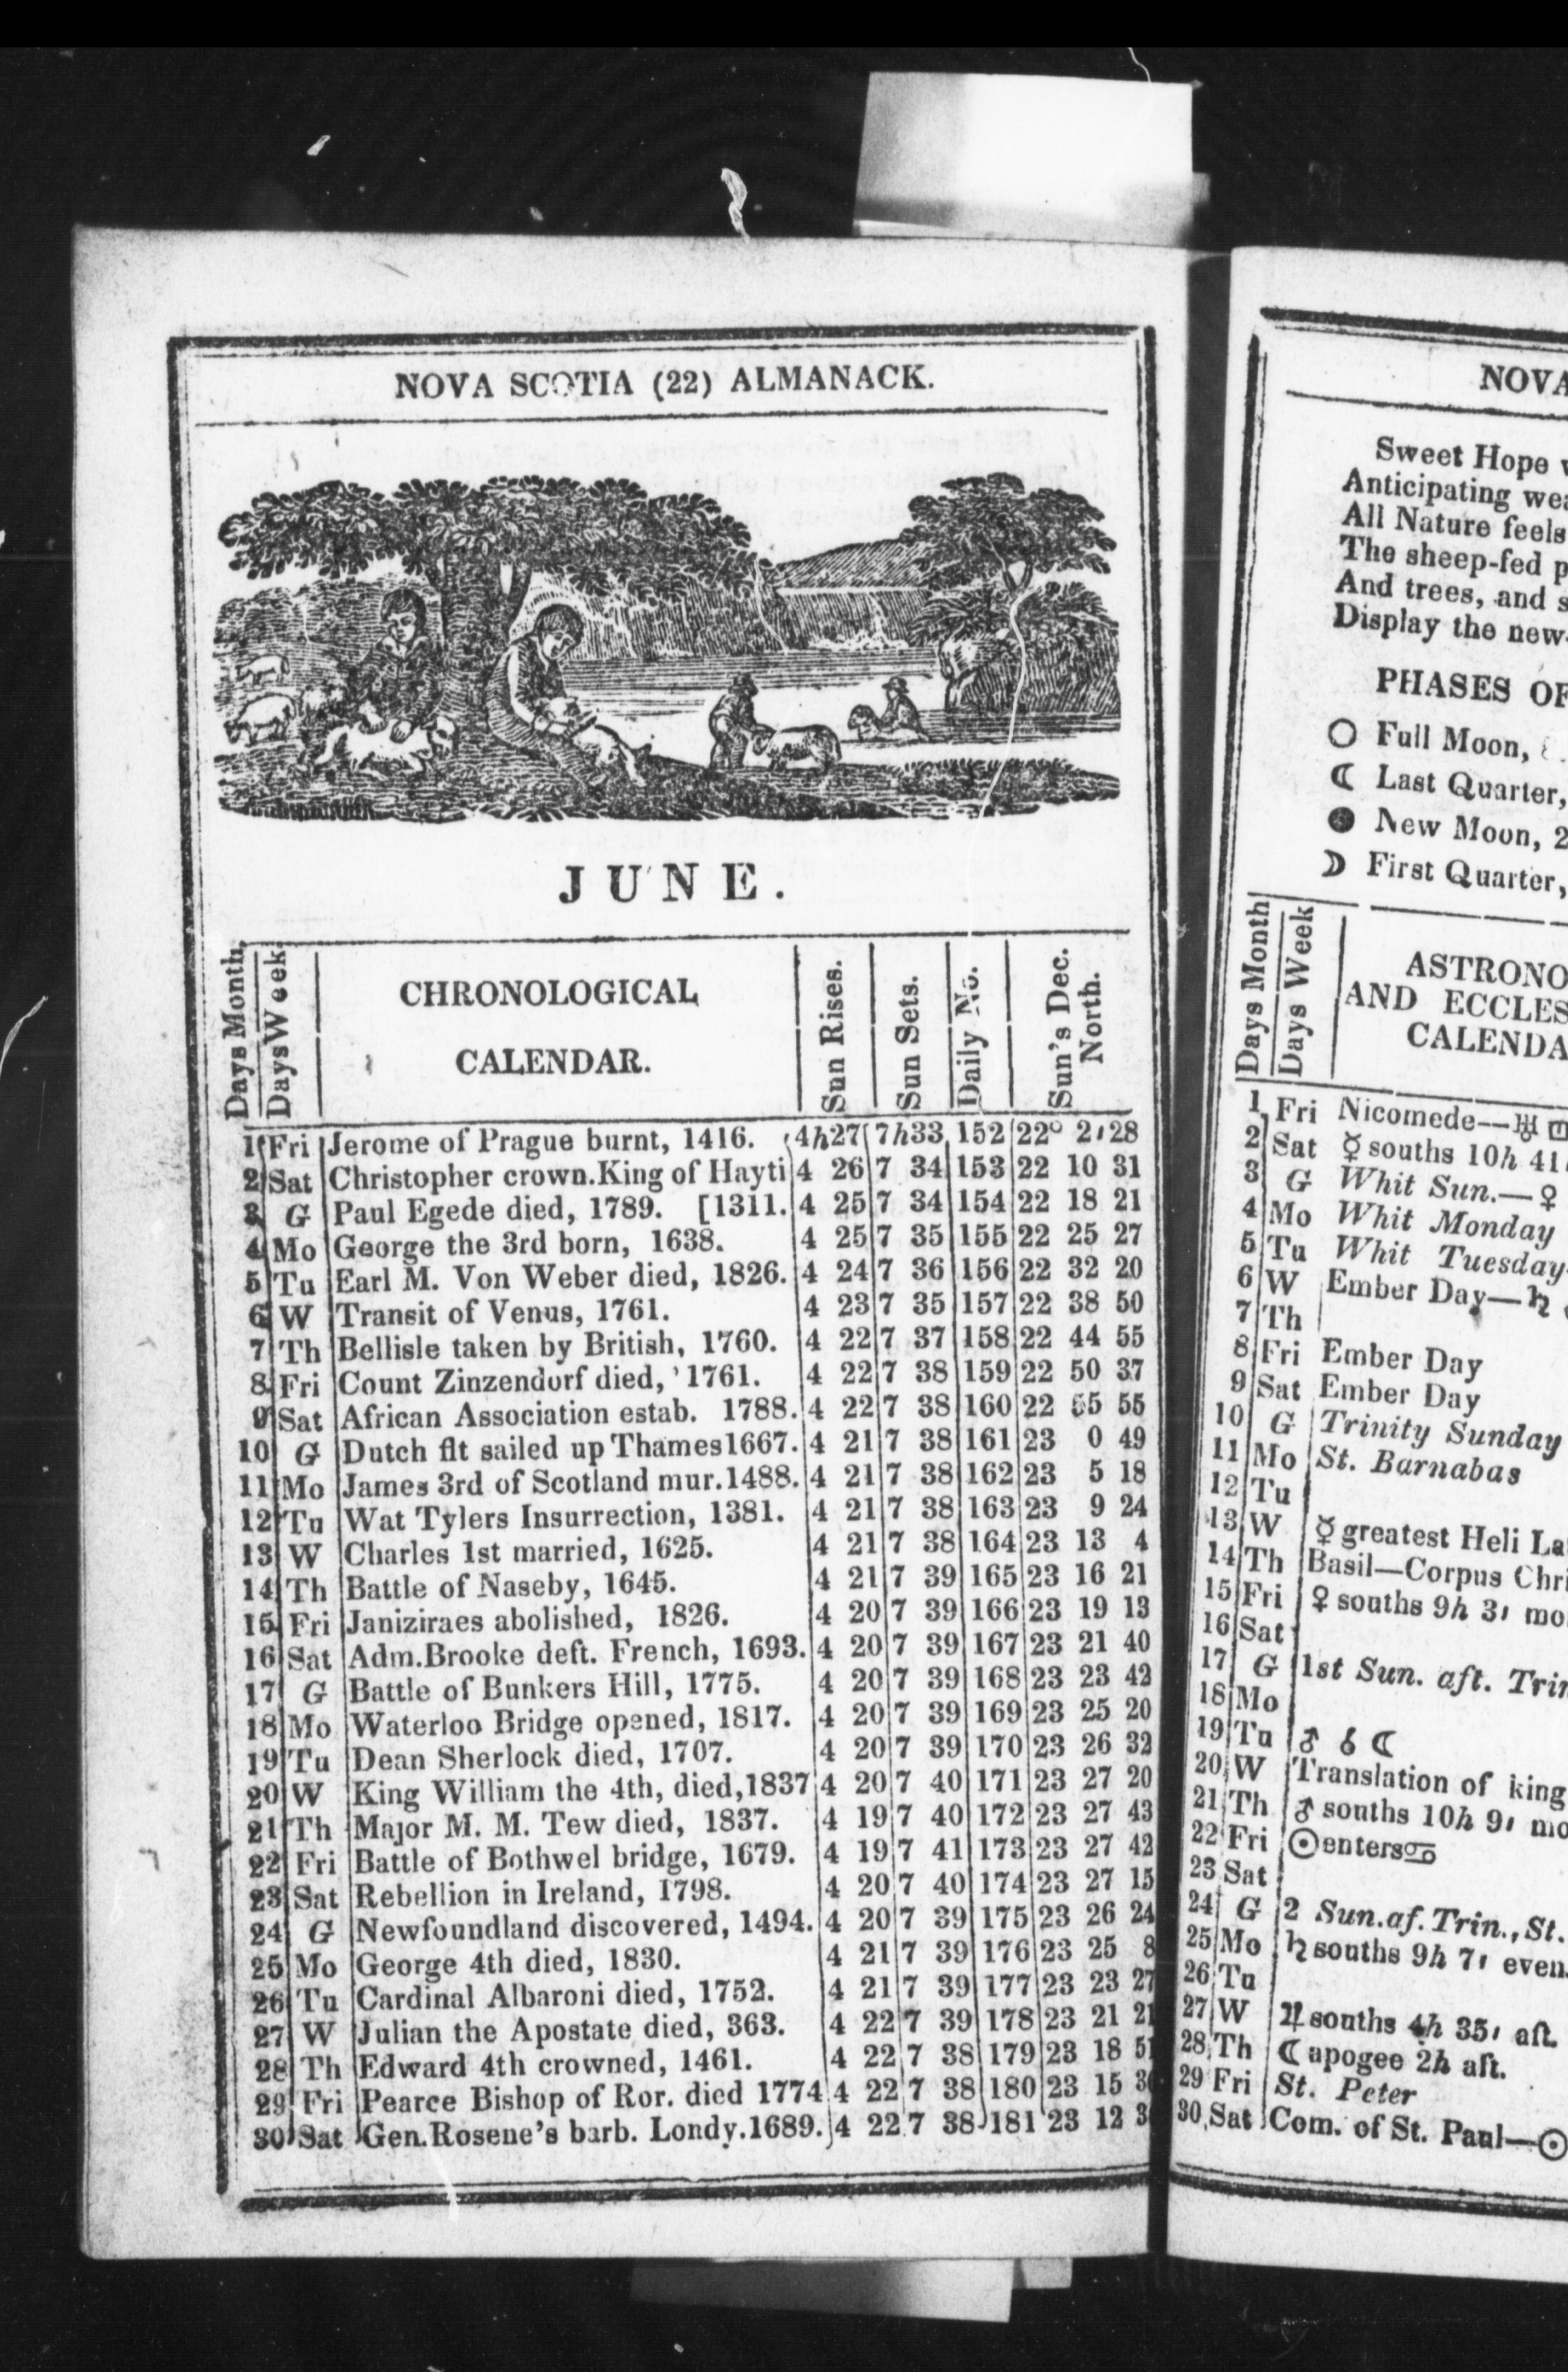 NOVA SCOTIA (22) ALMANACK.
JUNE.
Days Month.
Days Week
CHRONOLOGICAL
CALENDAR.
Sun Rises.
Sun Sets.
Daily No.
Sun's Dec.
North.
1 Fri Jerome of Prague burnt, 1416. 4h27 7h33 152 22° 2′28
2 Sat Christopher crown.King of Hayti 4 26 7 34 153 22 10 31
3 G Paul Egede died, 1789. [1311. 4 25 7 34 154 22 18 21
4 Mo George the 3rd born, 1638. 4 25 7 35 155 22 25 27
5 Tu Earl M. Von Weber died, 1826. 4 24 7 36 156 22 32 20
6 W Transit of Venus, 1761. 4 23 7 35 157 22 38 50
7 Th Bellisle taken by British, 1760. 4 22 7 37 158 22 44 55
8 Fri Count Zinzendorf died, 1761. 4 22 7 38 159 22 50 37
9 Sat African Association estab. 1788. 4 22 7 38 160 22 55 55
10 G Dutch flt sailed up Thames1667. 4 21 7 38 161 23 0 49
11 Mo James 3rd of Scotland mur.1488. 4 21 7 38 162 23 5 18
12 Tu Wat Tylers Insurrection, 1381. 4 21 7 38 163 23 9 24
13 W Charles 1st married, 1625. 4 21 7 38 164 23 13 4
14 Th Battle of Naseby, 1645. 4 21 7 39 165 23 16 21
15 Fri Janiziraes abolished, 1826. 4 20 7 39 166 23 19 13
16 Sat Adm.Brooke deft. French, 1693. 4 20 7 39 167 23 21 40
17 G Battle of Bunkers Hill, 1775. 4 20 7 39 168 23 23 42
18 Mo Waterloo Bridge opened, 1817. 4 20 7 39 169 23 25 20
19 Tu Dean Sherlock died, 1707. 4 20 7 39 170 23 26 32
20 W King William the 4th, died,1837 4 20 7 40 171 23 27 20
21 Th Major M. M. Tew died, 1837. 4 19 7 40 172 23 27 43
22 Fri Battle of Bothwel bridge, 1679. 4 19 7 41 173 23 27 42
23 Sat Rebellion in Ireland, 1798. 4 20 7 40 174 23 27 15
24 G Newfoundland discovered, 1494. 4 20 7 39 175 23 26 24
25 Mo George 4th died, 1830. 4 21 7 39 176 23 25 8
26 Tu Cardinal Albaroni died, 1752. 4 21 7 39 177 23 23 27
27 W Julian the Apostate died, 363. 4 22 7 39 178 23 21 21
28 Th Edward 4th crowned, 1461. 4 22 7 38 179 23 18 51
29 Fri Pearce Bishop of Ror. died 1774 4 22 7 38 180 23 15
30 Sat Gen.Rosene's barb. Londy.1689. 4 22 7 38 181 23 12
NOVA
Sweet Hope
Anticipating
All Nature feels
The sheep-fed
And trees, and
Display the new-
PHASES OF
○ Full Moon,
☾ Last Quarter,
● New Moon, 2
☽ First Quarter,
Days Month
Days Week
ASTRONO
AND ECCLES
CALENDA
1 Fri Nicomede—♅ □
2 Sat ☿ souths 10h 41
3 G Whit Sun.—♀
4 Mo Whit Monday
5 Tu Whit Tuesday
6 W Ember Day—♄
7 Th
8 Fri Ember Day
9 Sat Ember Day
10 G Trinity Sunday
11 Mo St. Barnabas
12 Tu
13 W ☿ greatest Heli La
14 Th Basil—Corpus Chri
15 Fri ♀ souths 9h 3′ mo
16 Sat
17 G 1st Sun. aft. Trin
18 Mo
19 Tu ♂ ☌ ☾
20 W Translation of king
21 Th ♂ souths 10h 9′ mo
22 Fri ☉enters♋
23 Sat
24 G 2 Sun.af.Trin.,St.
25 Mo ♄ souths 9h 7′ even.
26 Tu
27 W ♃ souths 4h 35′ aft.
28 Th ☾ apogee 2h aft.
29 Fri St. Peter
30 Sat Com. of St. Paul—☉